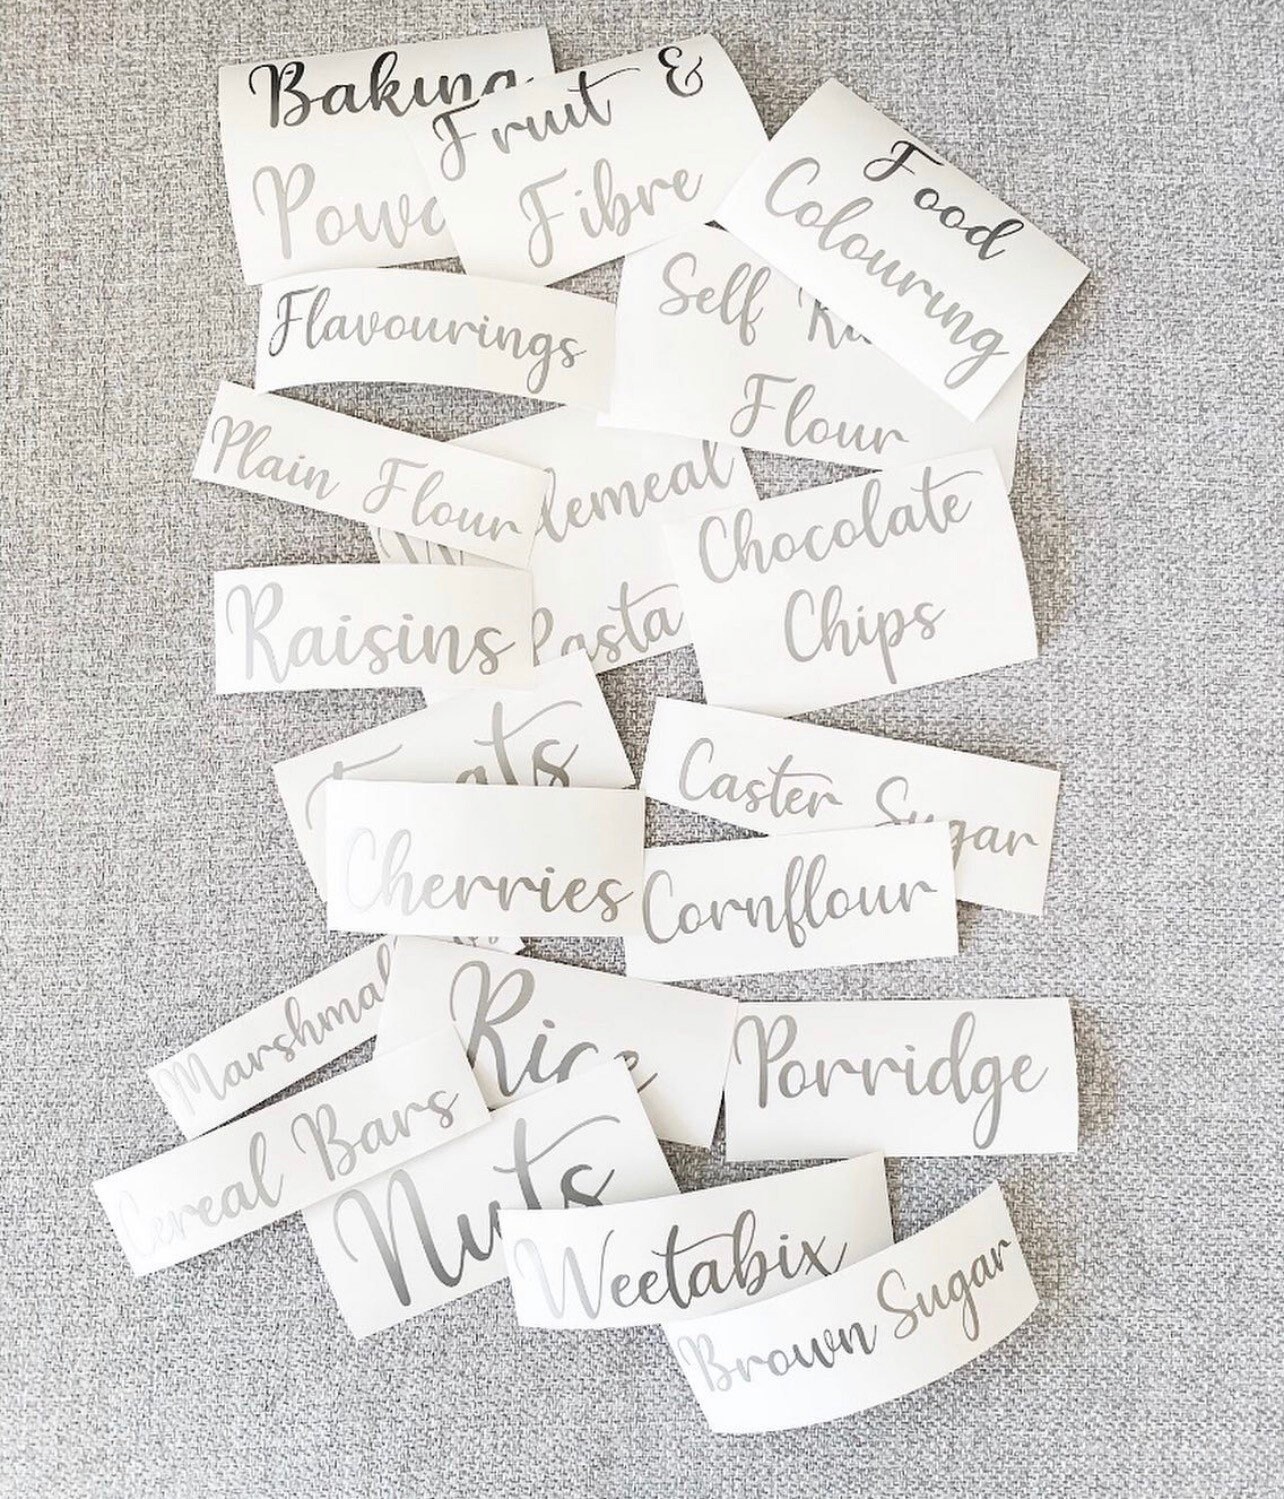 Baking
Powd
Fruit &
Fibre
Food
Colouring
Flavourings
Self Ra
Flour
Plain Flour
lemeal
Pasta
Chocolate
Chips
Raisins
Caster Sugar
Cherries
Cornflour
Marshmal
Rice
Porridge
Cereal Bars
Nuts
Weetabix
Brown Sugar